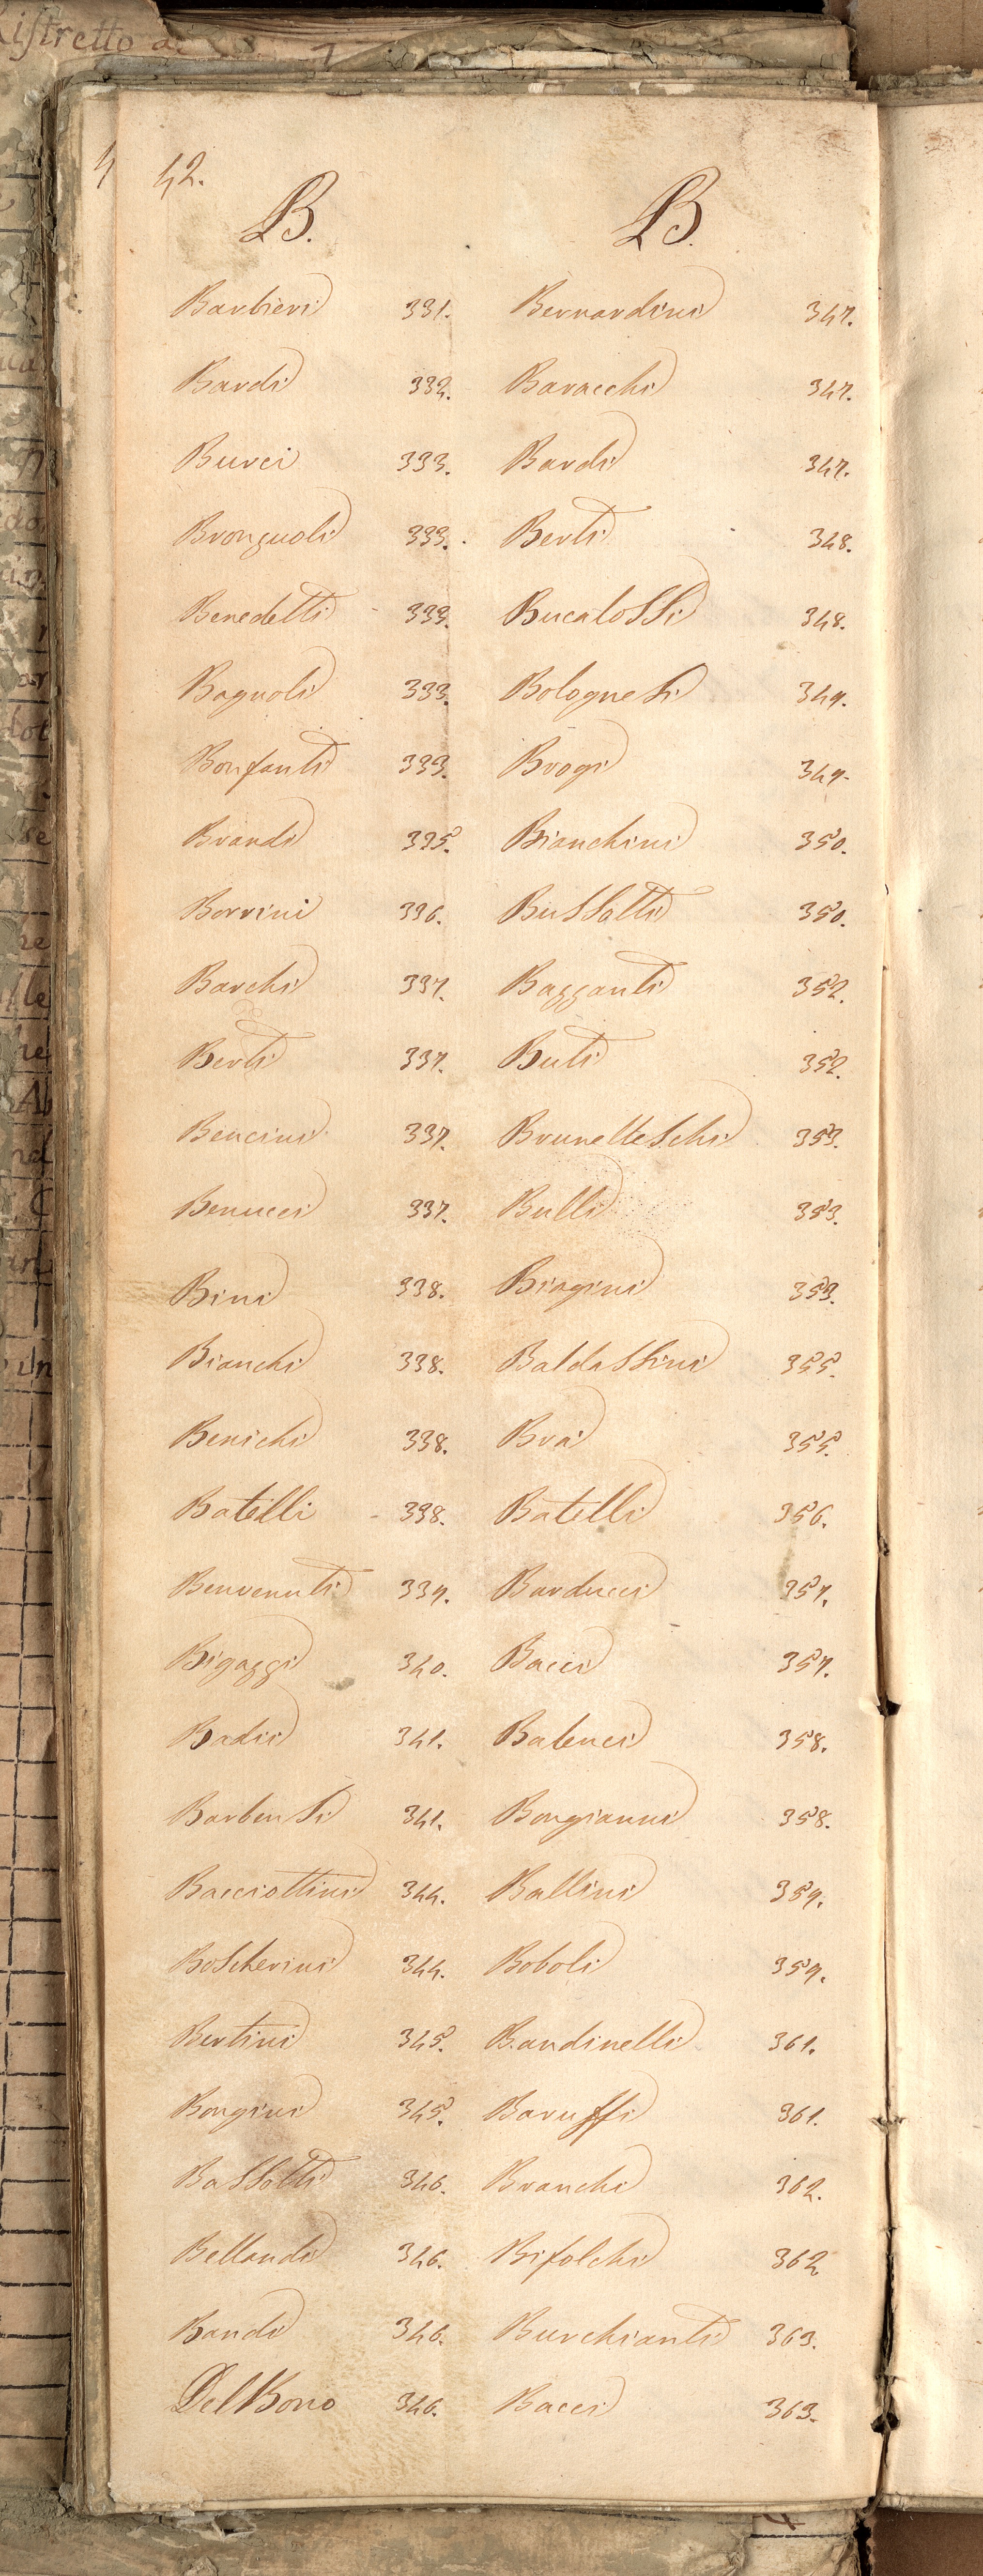 Ristretto
42.
B.
Barbieri 331.
Bardi 332.
Burci 333.
Brongnoli 333.
Benedetti 333.
Bagnoli 333.
Bonfanti 333.
Brandi 335.
Borrini 336.
Barchi 337.
Berti 337.
Bencini 337.
Benucci 337.
Bini 338.
Bianchi 338.
Benichi 338.
Batelli 338.
Benvenuti 339.
Bigazzi 340.
Badii 341.
Barbensi 341.
Bacciottini 344.
Boscherini 344.
Bertini 345.
Bongini 345.
Bassotti 346.
Bellandi 346.
Bandi 346.
Del Bono 346.
B.
Bernardini 347.
Baracchi 347.
Bardi 347.
Berti 348.
Bucalossi 348.
Bolognesi 349.
Brogi 349.
Bianchini 350.
Bussotti 350.
Bazzanti 352.
Buti 352.
Brunelleschi 353.
Bulli 353.
Biagini 353.
Baldassini 355.
Bra 355.
Batelli 356.
Barducci 357.
Bacci 357.
Balenci 358.
Bongianni 358.
Ballini 359.
Boboli 359.
Bandinelli 361.
Baruffi 361.
Branchi 362.
Bifolchi 362
Burchianti 363.
Bacci 363.